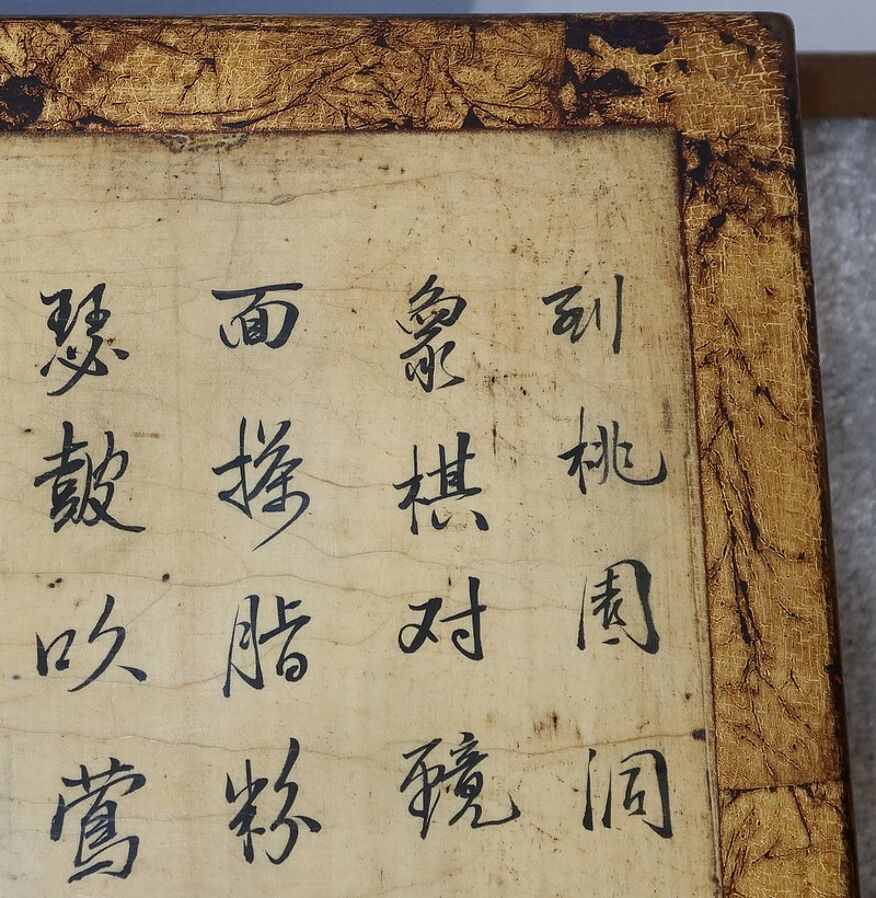 到桃園洞
象棋对鏡
面搽脂粉
瑟鼓吹鶯